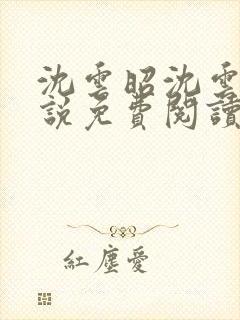 沈雲昭沈雲
說免費閱讀
紅塵愛